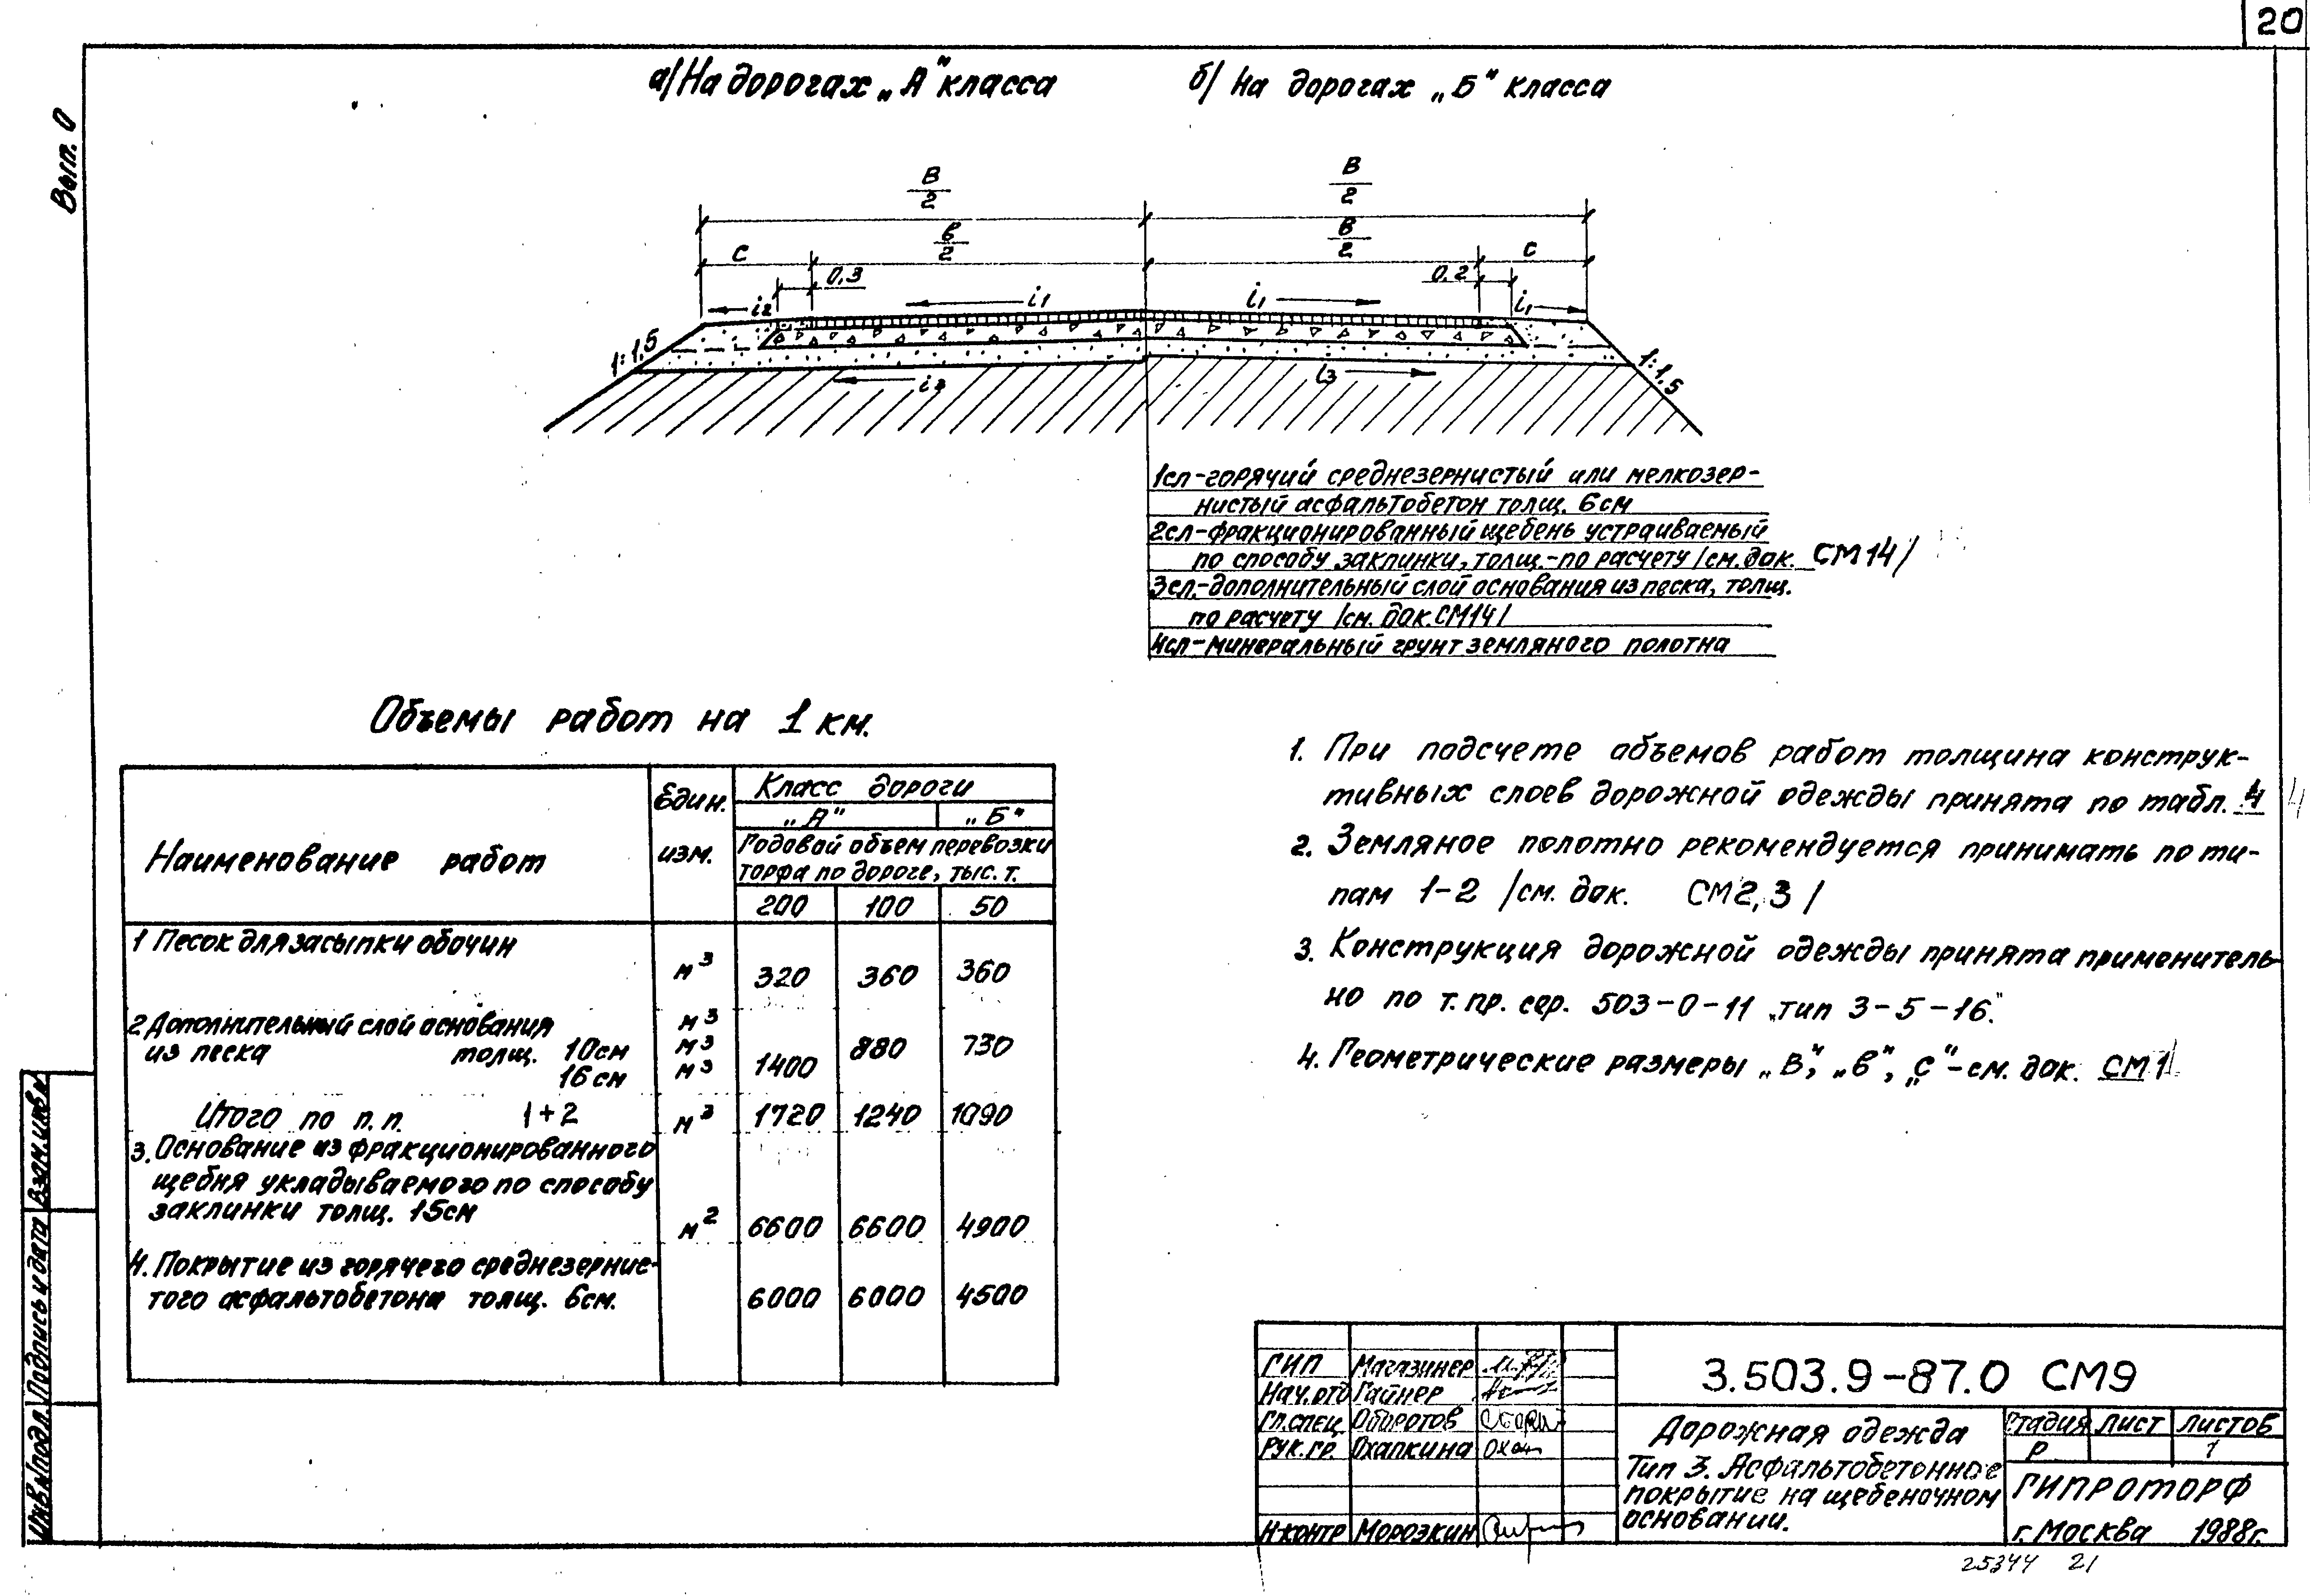 20
Вып. 0
а/ На дорогах „А" класса
б/ На дорогах „Б" класса
В/2
В/2
С
в/2
В/2
С
0,3
0,2
i2
i1
i1
i1
1:1,5
i3
i3
1:1,5
1сл-горячий среднезернистый или мелкозер-
нистый асфальтобетон толщ. 6см
2сл-фракционированный щебень устраиваемый
по способу заклинки, толщ.-по расчету /см. док. СМ14/
3сл.-дополнительный слой основания из песка, толщ.
по расчету /см. док. СМ14/
4сл-минеральный грунт земляного полотна
Объемы работ на 1 км.
Наименование работ
Един. изм.
Класс дороги
„А" „Б"
Годовой объем перевозки
торфа по дороге, тыс. т.
200 100 50
1 Песок для засыпки обочин
м3 320 360 360
2 Дополнительный слой основания м3
из песка толщ. 10см м3 880 730
16см м3 1400
Итого по п.п. 1+2 м3 1720 1240 1090
3. Основание из фракционированного
щебня укладываемого по способу
заклинки толщ. 15см м2 6600 6600 4900
4. Покрытие из горячего среднезернис-
того асфальтобетона толщ. 6см. 6000 6000 4500
1. При подсчете объемов работ толщина конструк-
тивных слоев дорожной одежды принята по табл. 4
4
2. Земляное полотно рекомендуется принимать по ти-
пам 1-2 /см. док. СМ2,3/
3. Конструкция дорожной одежды принята применитель-
но по т. пр. сер. 503-0-11 „тип 3-5-16".
4. Геометрические размеры „В", „в", „с" - см. док. СМ1
Инв.№подл. Подпись и дата Взам.инв.№
ГИП Магазинер
Нач.отд Гайнер
Гл.спец Обиротов
Рук.гр. Охапкина
Н-контр Морозкин
3.503.9-87.0 СМ9
Дорожная одежда
Тип 3. Асфальтобетонное
покрытие на щебеночном
основании.
Стадия Лист Листов
Р 1
ГИПРОТОРФ
г. Москва 1988г.
25344 21